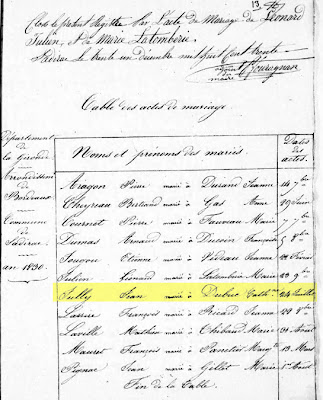 13
Clos le présent Registre par l'acte de Mariage de Léonard
Julien, et de Marie Latomberie.
le trente un décembre mil huit cent trente
Table des actes de mariage.
Département
de
la Gironde
Arrondissement
de
Bordeaux
Commune
de
Cadirac
an 1830.
Noms et prénoms des mariés. Dates des actes.
Aragon Pierre marié à Durand Jeanne 7 9bre
Cheyreau Bertrand marié à Gas Anne 29 Juin
Cournet Pierre marié à Fauveau Marie 7 7bre
Dumas Arnaud marié à Ducoin Françoise
Jouven Etienne marié à Videau Jeanne
Julien Léonard marié à Latomberie Marie
Sully Jean marié à Dubuc Cath.ne 24 Juillet
Lasserre François marié à Ricard Jeanne
Laville Mathieu marié à Thibaud Marie Août
Mauret François marié à Marg.te Mars
Jean marié à Gillet Marie Août
Fin de la Table.